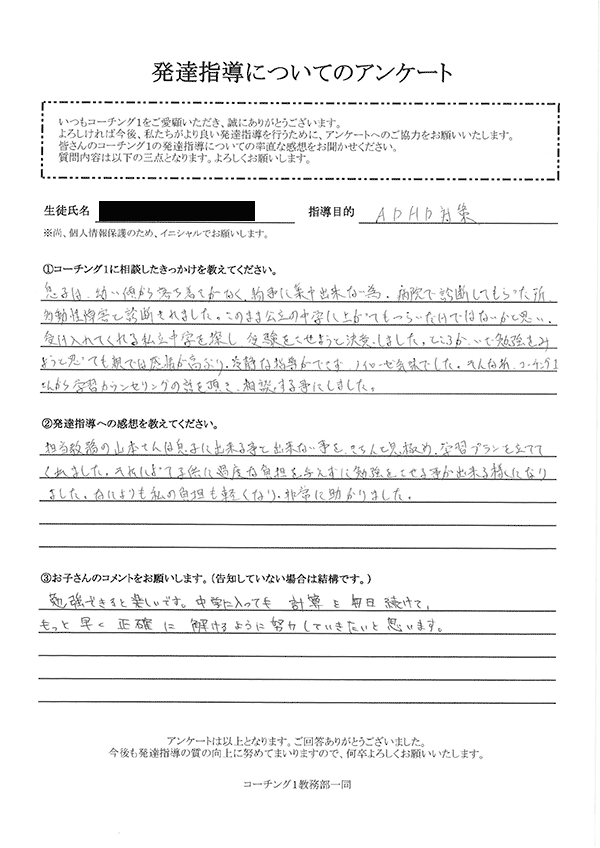 発達指導についてのアンケート
いつもコーチング1をご愛顧いただき、誠にありがとうございます。
よろしければ今後、私たちがより良い発達指導を行うために、アンケートへのご協力をお願いいたします。
皆さんのコーチング1の発達指導についての率直な感想をお聞かせください。
質問内容は以下の三点となります。よろしくお願いします。
生徒氏名 指導目的 ADHD対策
※尚、個人情報保護のため、イニシャルでお願いします。
①コーチング1に相談したきっかけを教えてください。
息子は、幼い頃から落ち着きがなく、物事に集中出来ない為、病院で診断してもらった所、
多動性障害と診断されました。このまま公立の中学に上がってもつらいだけではないかと思い、
受け入れてくれる私立中学を探し、受験をさせようと決意しました。ところが、いざ勉強をみ
ようと思っても親では感情が高ぶり、冷静な指導ができず、ノイローゼ気味でした。そんな折、コーチング1
さんから学習カウンセリングの話を頂き、相談する事にしました。
②発達指導への感想を教えてください。
担当教務の山本さんは息子に出来る事と出来ない事を、きちんと見極め、学習プランを立てて
くれました。それによって子供に過度な負担を与えずに勉強をさせる事が出来る様になり
ました。なによりも私の負担も軽くなり、非常に助かりました。
③お子さんのコメントをお願いします。（告知していない場合は結構です。）
勉強できると楽しいです。中学に入っても 計算を毎日続けて、
もっと早く正確に解けるように努力していきたいと思います。
アンケートは以上となります。ご回答ありがとうございました。
今後も発達指導の質の向上に努めてまいりますので、何卒よろしくお願いいたします。
コーチング1教務部一同